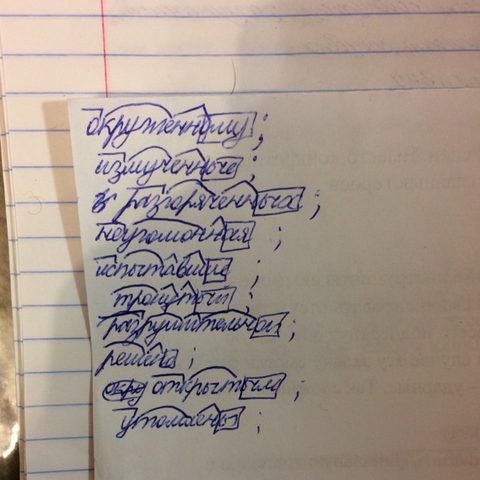 окруженному;
измученные;
в разгоряченных;
неугомонная;
испытавшие;
тронутый;
разрушительной;
решена;
открытыми;
утомлены;